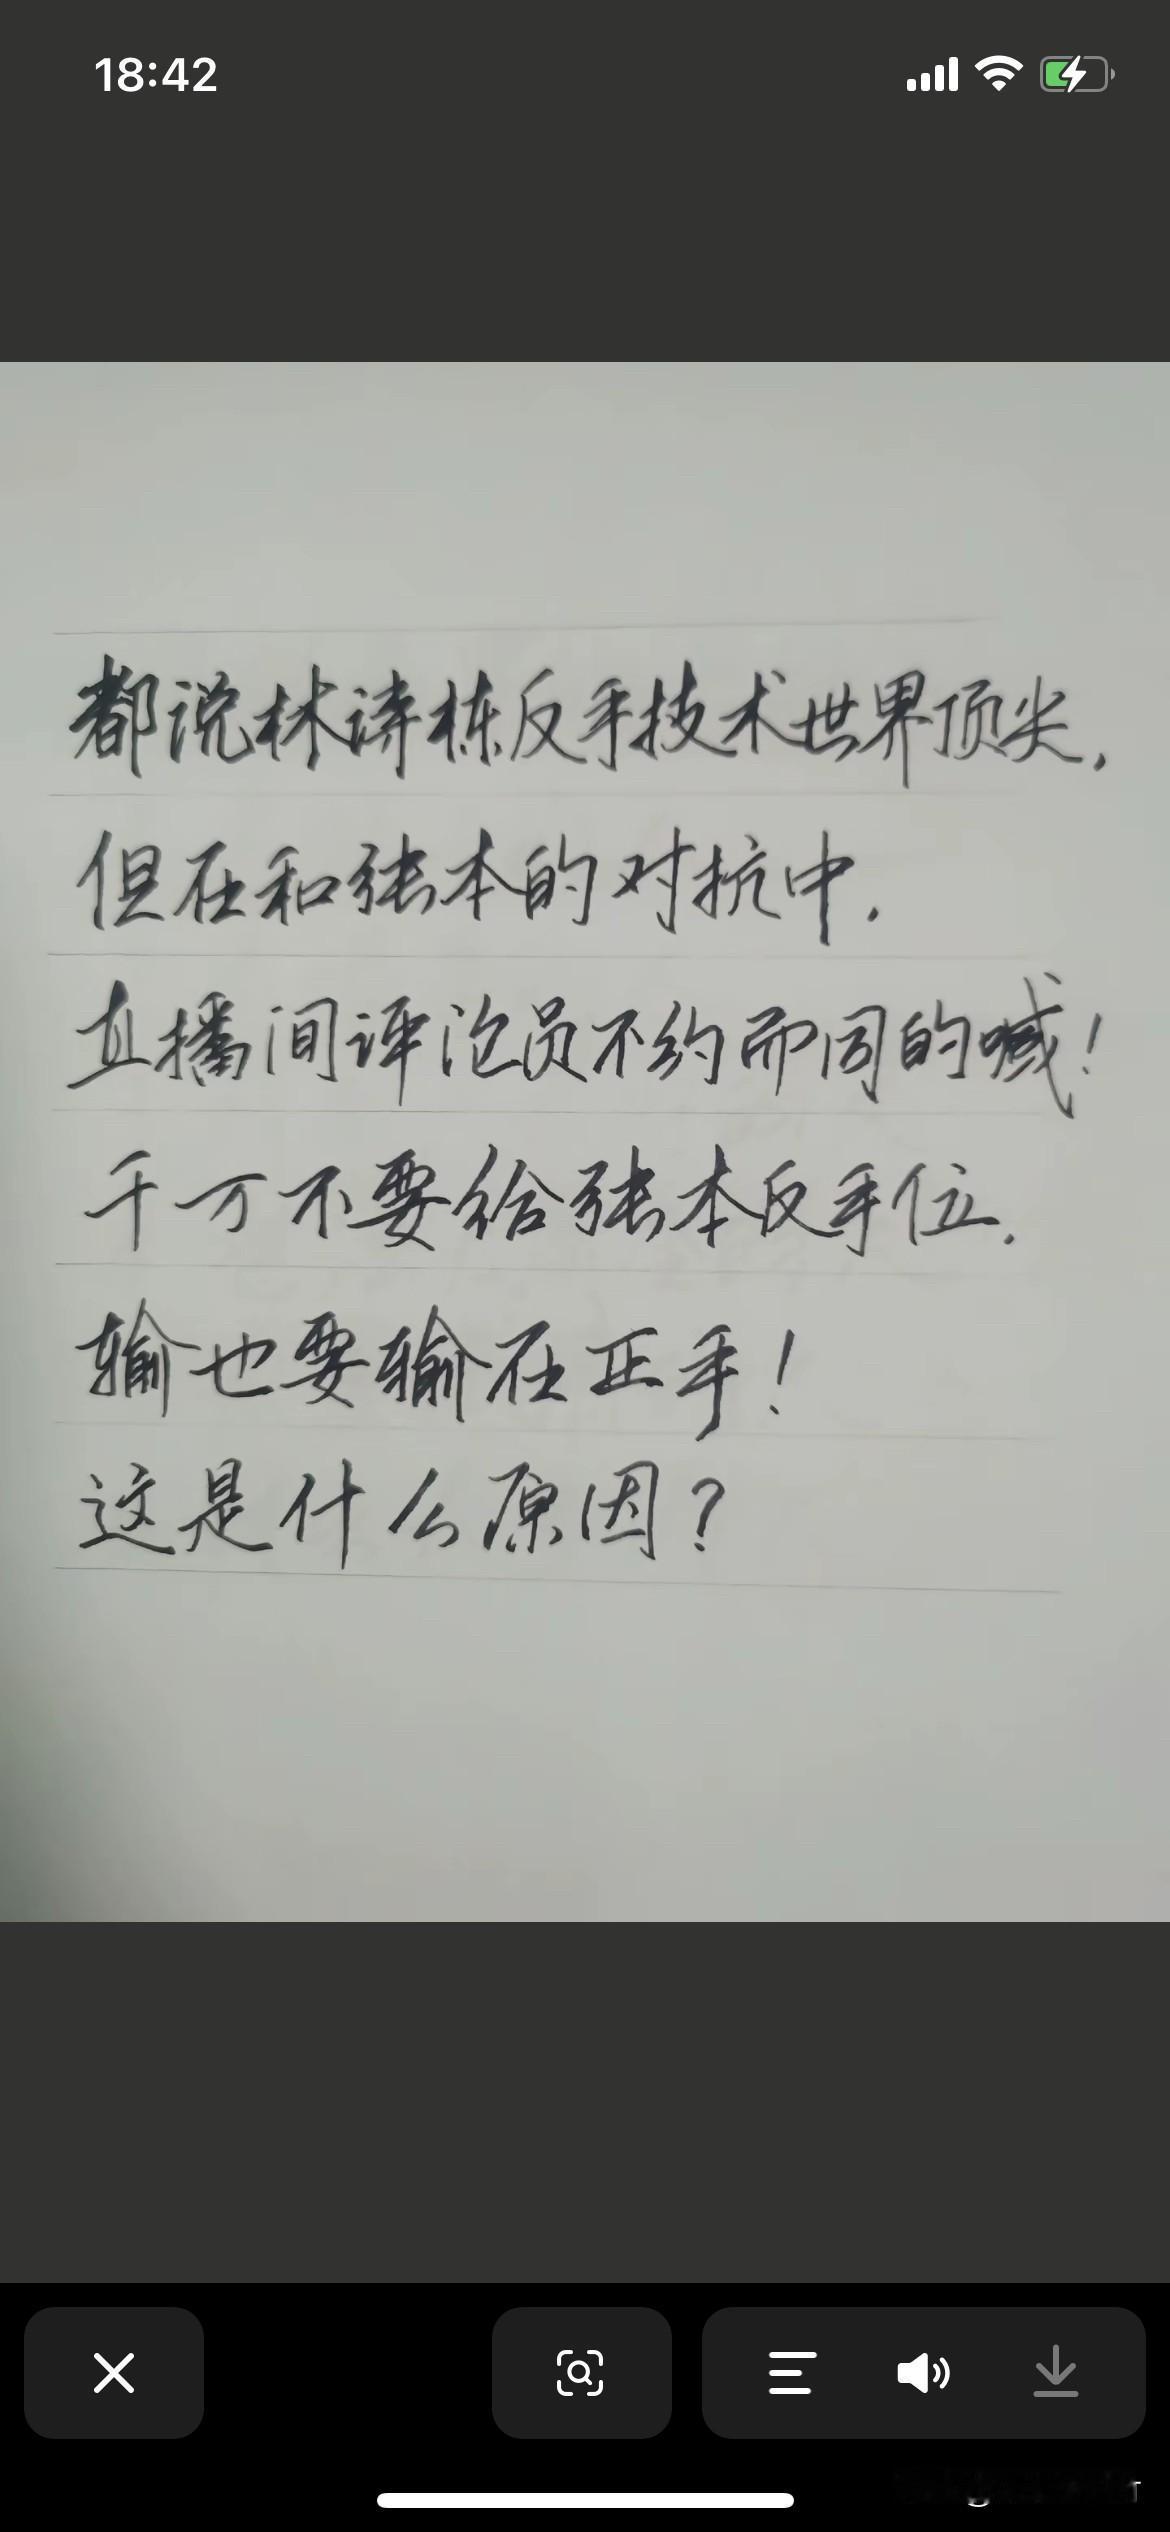 18:42
都说林诗栋反手技术世界顶尖，
但在和张本的对抗中，
直播间评论员不约而同的喊！
千万不要给张本反手位，
输也要输在正手！
这是什么原因？